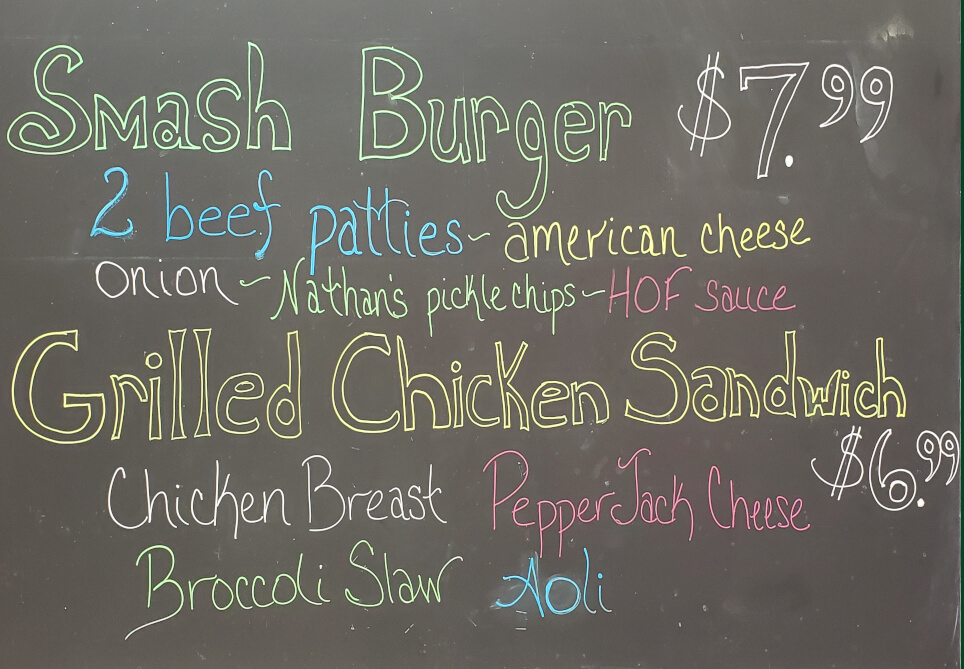 Smash Burger $7.99
2 beef patties~american cheese
onion~Nathan's pickle chips~HOF sauce
Grilled Chicken Sandwich
$6.99
Chicken Breast Pepper Jack Cheese
Broccoli Slaw Aoli